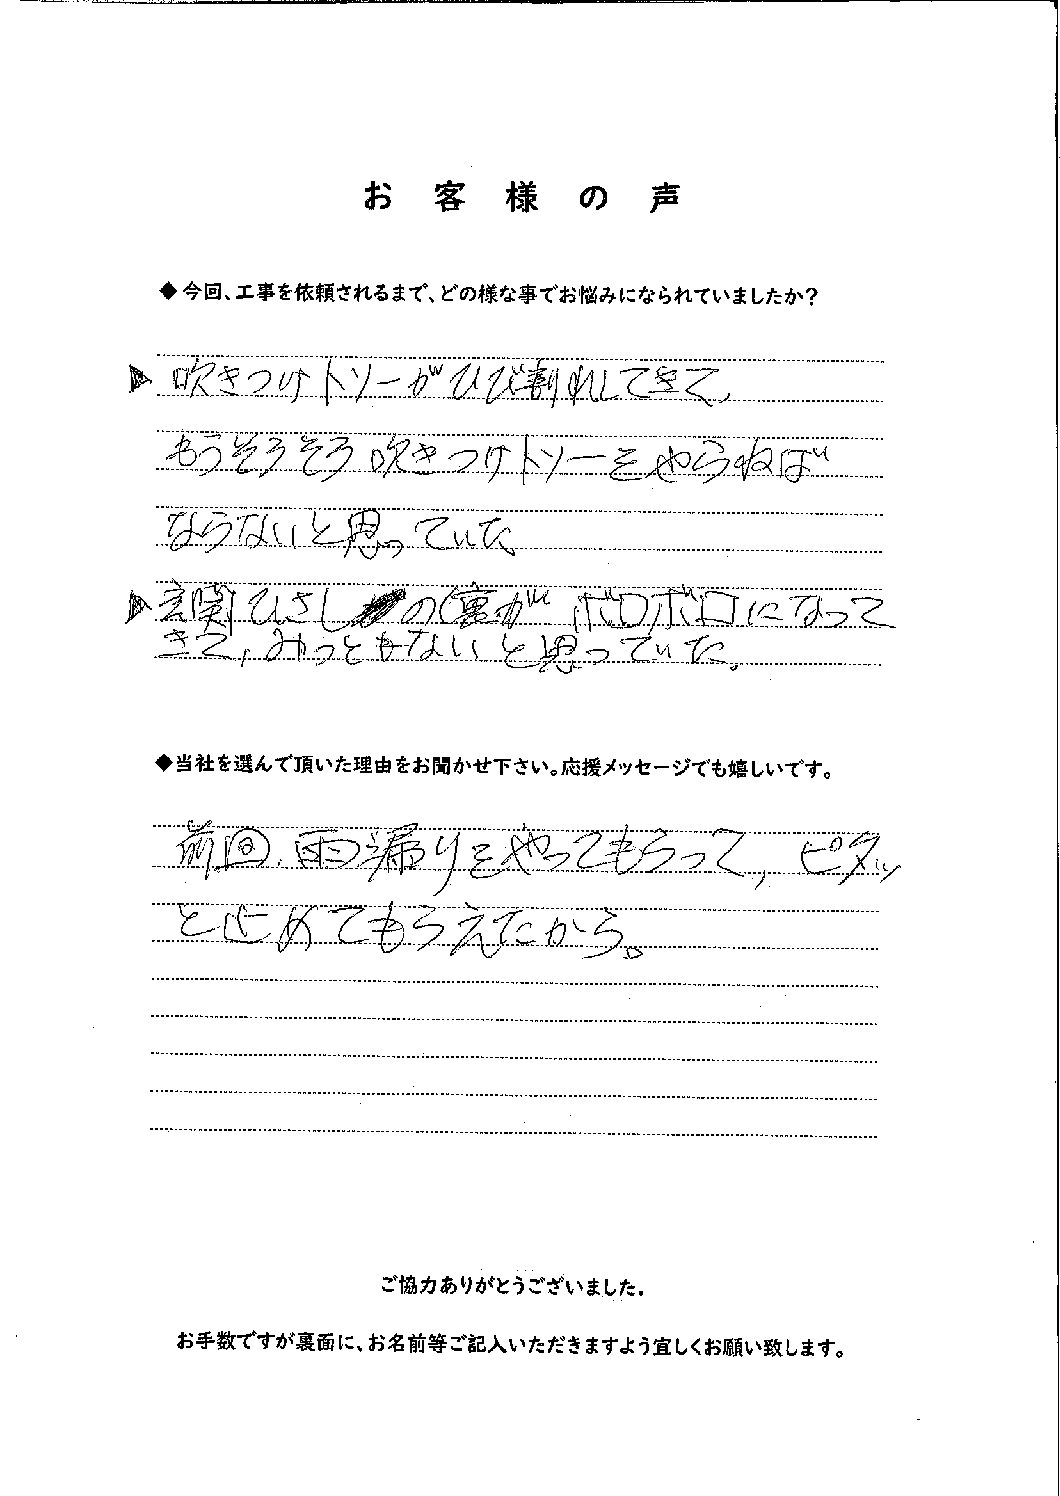 お客様の声
◆今回、工事を依頼されるまで、どの様な事でお悩みになられていましたか？
▶吹きつけトソーがひび割れしてきて、
もうそろそろ吹きつけトソーをやらねば
ならないと思っていた
▶玄関ひさしの裏がボロボロになって
きて、みっともないと思っていた。
◆当社を選んで頂いた理由をお聞かせ下さい。応援メッセージでも嬉しいです。
前回、雨漏りをやってもらって、ピタッ
と止めてもらえたから。
ご協力ありがとうございました。
お手数ですが裏面に、お名前等ご記入いただきますよう宜しくお願い致します。